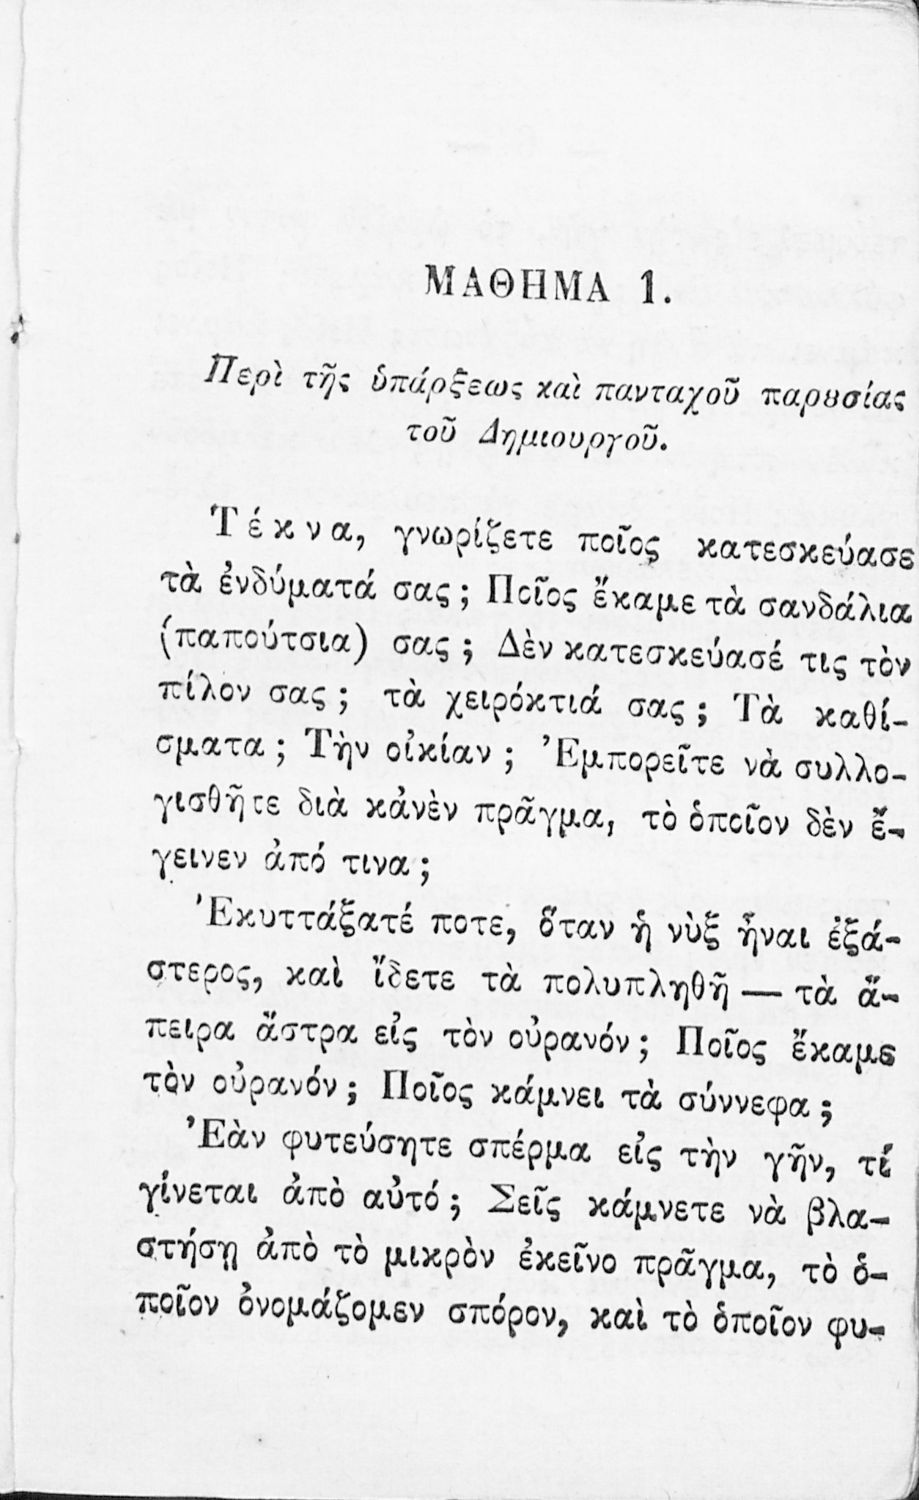 ΜΑΘΗΜΑ 1.
Περὶ τῆς ὑπάρξεως καὶ πανταχοῦ παρȣσίας
τοῦ Δημιουργοῦ.
Τέκνα, γνωρίζετε ποῖος κατεσκεύασε
τὰ ἐνδύματά σας; Ποῖος ἔκαμε τὰ σανδάλια
(παπούτσια) σας; Δὲν κατεσκεύασέ τις τὸν
πίλον σας; τὰ χειρόκτιά σας; Τὰ καθί-
σματα; Τὴν οἰκίαν; Ἐμπορεῖτε νὰ συλλο-
γισθῆτε διὰ κἀνὲν πρᾶγμα, τὸ ὁποῖον δὲν ἔ-
γεινεν ἀπό τινα;
Ἐκυττάξατέ ποτε, ὅταν ἡ νὺξ ἦναι ἐξά-
στερος, καὶ ἴδετε τὰ πολυπληθῆ — τὰ ἄ-
πειρα ἄστρα εἰς τὸν οὐρανόν; Ποῖος ἔκαμε
τὸν οὐρανόν; Ποῖος κάμνει τὰ σύννεφα;
Ἐὰν φυτεύσητε σπέρμα εἰς τὴν γῆν, τί
γίνεται ἀπὸ αὐτό; Σεῖς κάμνετε νὰ βλα-
στήσῃ ἀπὸ τὸ μικρὸν ἐκεῖνο πρᾶγμα, τὸ ὁ-
ποῖον ὀνομάζομεν σπόρον, καὶ τὸ ὁποῖον φυ-